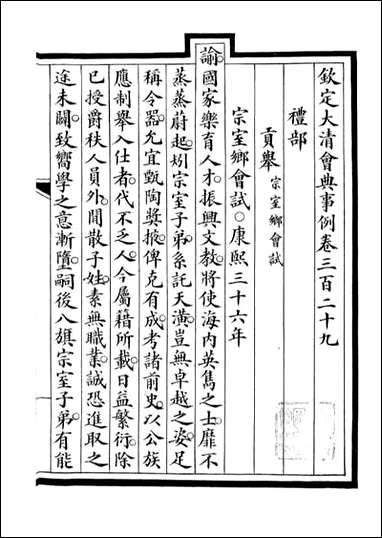 欽定大清會典事例卷三百二十九
禮部
貢舉宗室鄉會試
宗室鄉會試○康熙三十六年
諭國家樂育人才振興文教將使海內英雋之士靡不
蒸蒸蔚起矧宗室子弟系託天潢豈無卓越之姿足
稱令器允宜甄陶獎掖俾克有成考諸前史以公族
應制舉入仕者代不乏人今屬籍所載日益繁衍除
已授爵秩人員外閒散子姓素無職業誠恐進取之
途未闢致嚮學之意漸墮嗣後八旗宗室子弟有能